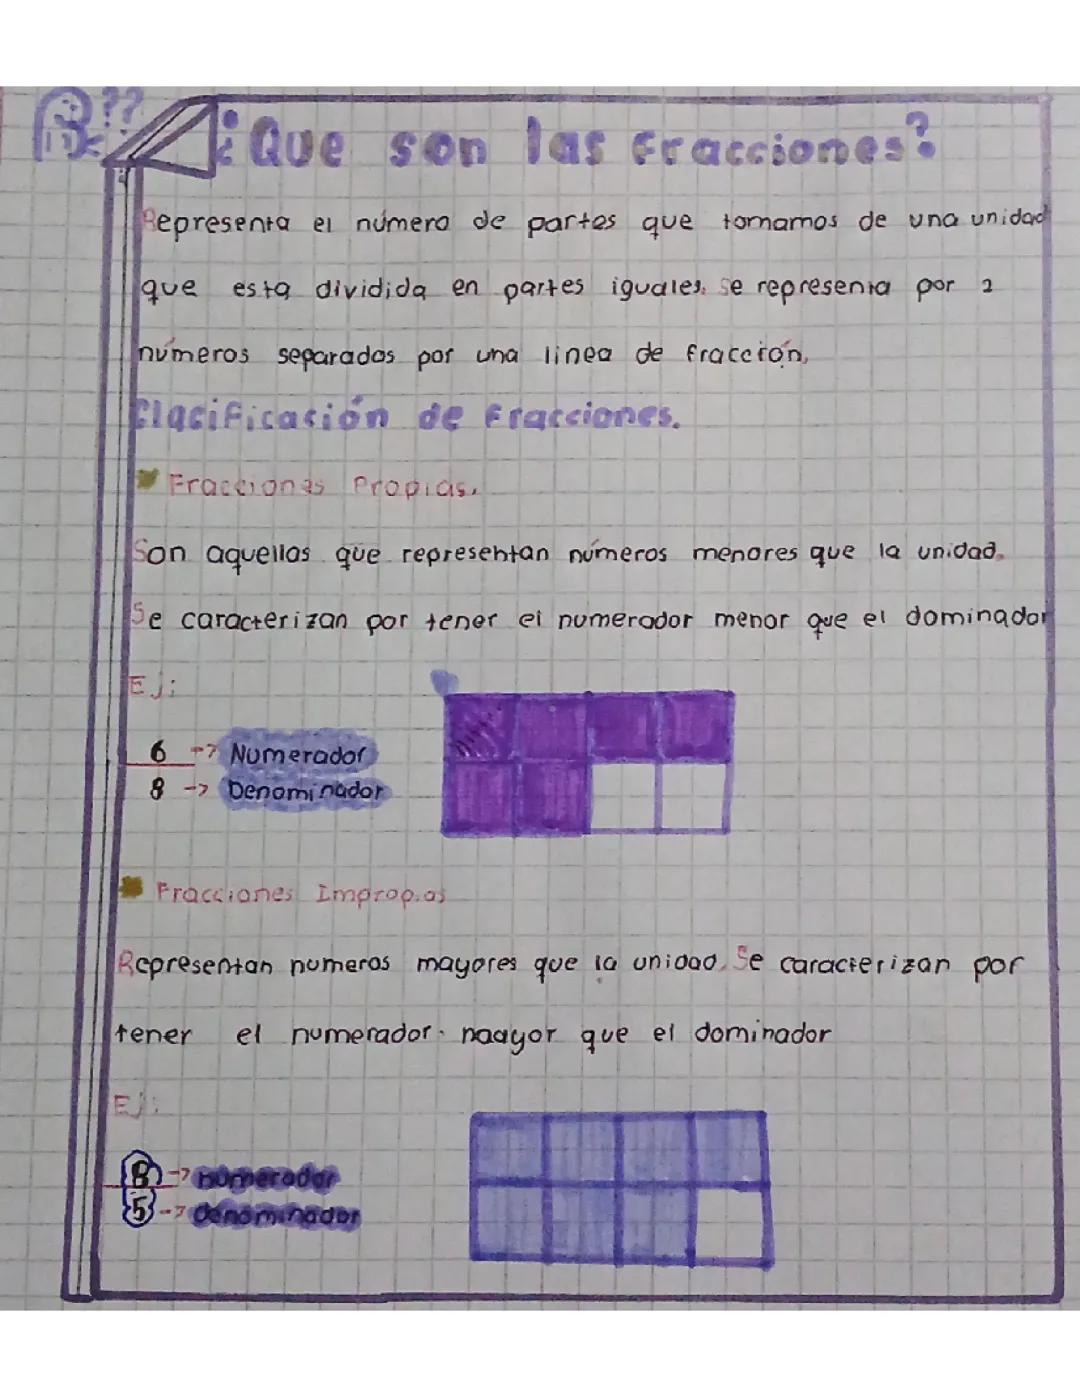 ??
¿Que son las Fracciones?
Representa el número de partes que tomamos de una unidad
que esta dividida en partes iguales. Se representa por 2
números separados por una linea de fracción,
Clacificación de Fracciones.
Fracciones Propias.
Son aquellas que representan números menores que la unidad.
Se caracterizan por tener el numerador menor que el dominador
Ej:
6 -> Numerador
8 -> Denominador
Fracciones Impropias
Representan numeros mayores que la unidad. Se caracterizan por
tener el numerador maayor que el dominador
Ej:
8 -> numerador
5 -> denominador